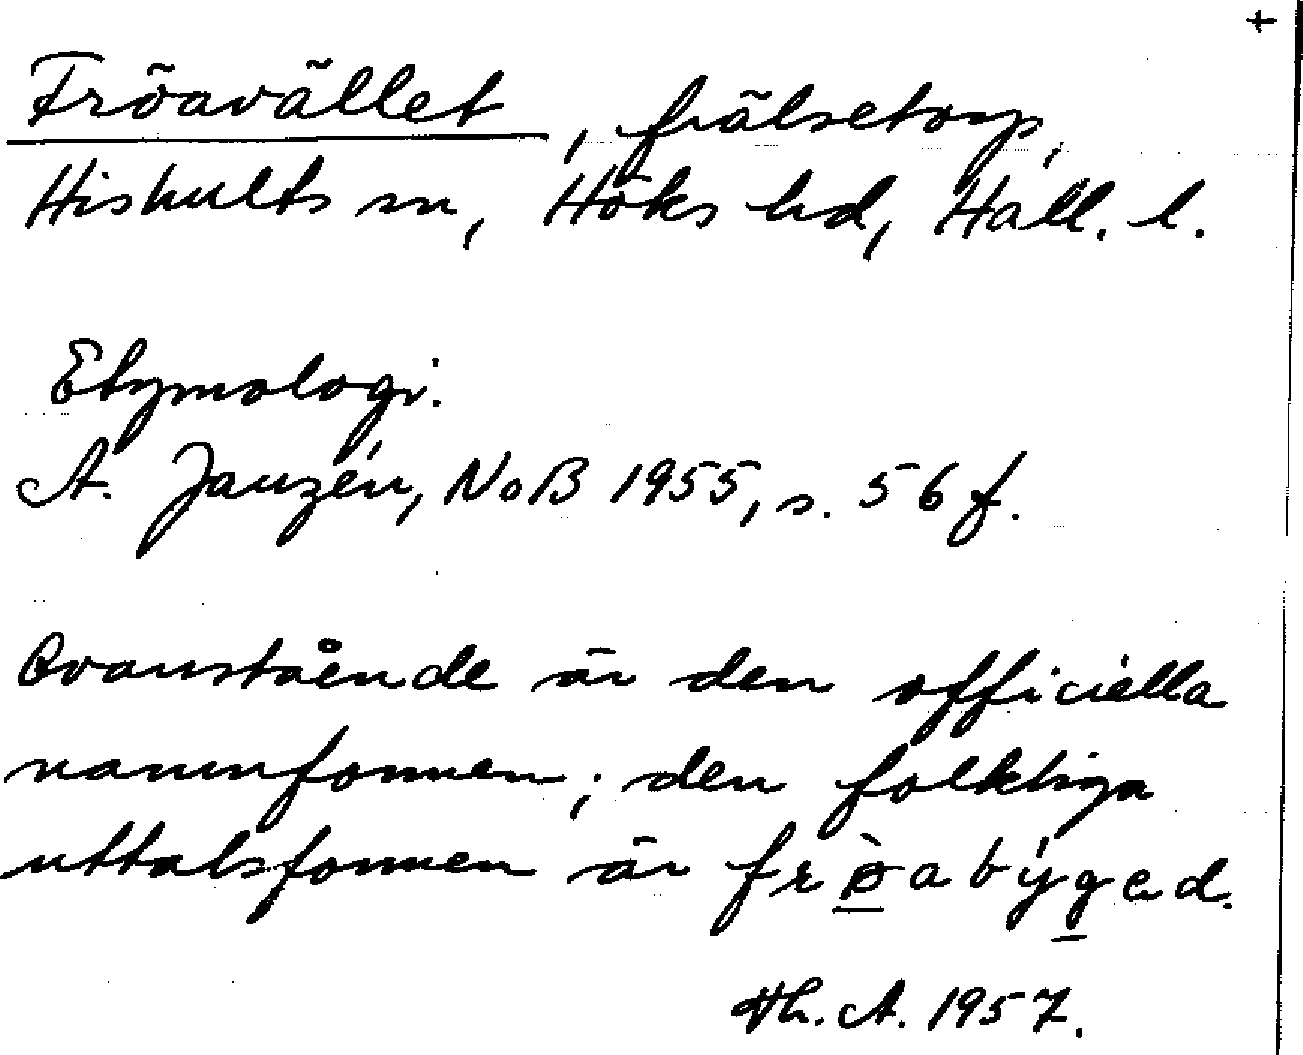 +
Fröavället, frälsetorp,
Hishults sn, Höks hd, Hall. l.
Etymologi:
A. Janzén, NoB 1955, s. 56 f.
Ovanstående är den officiella
namnformen; den folkliga
uttalsformen är
Th. A. 1957.